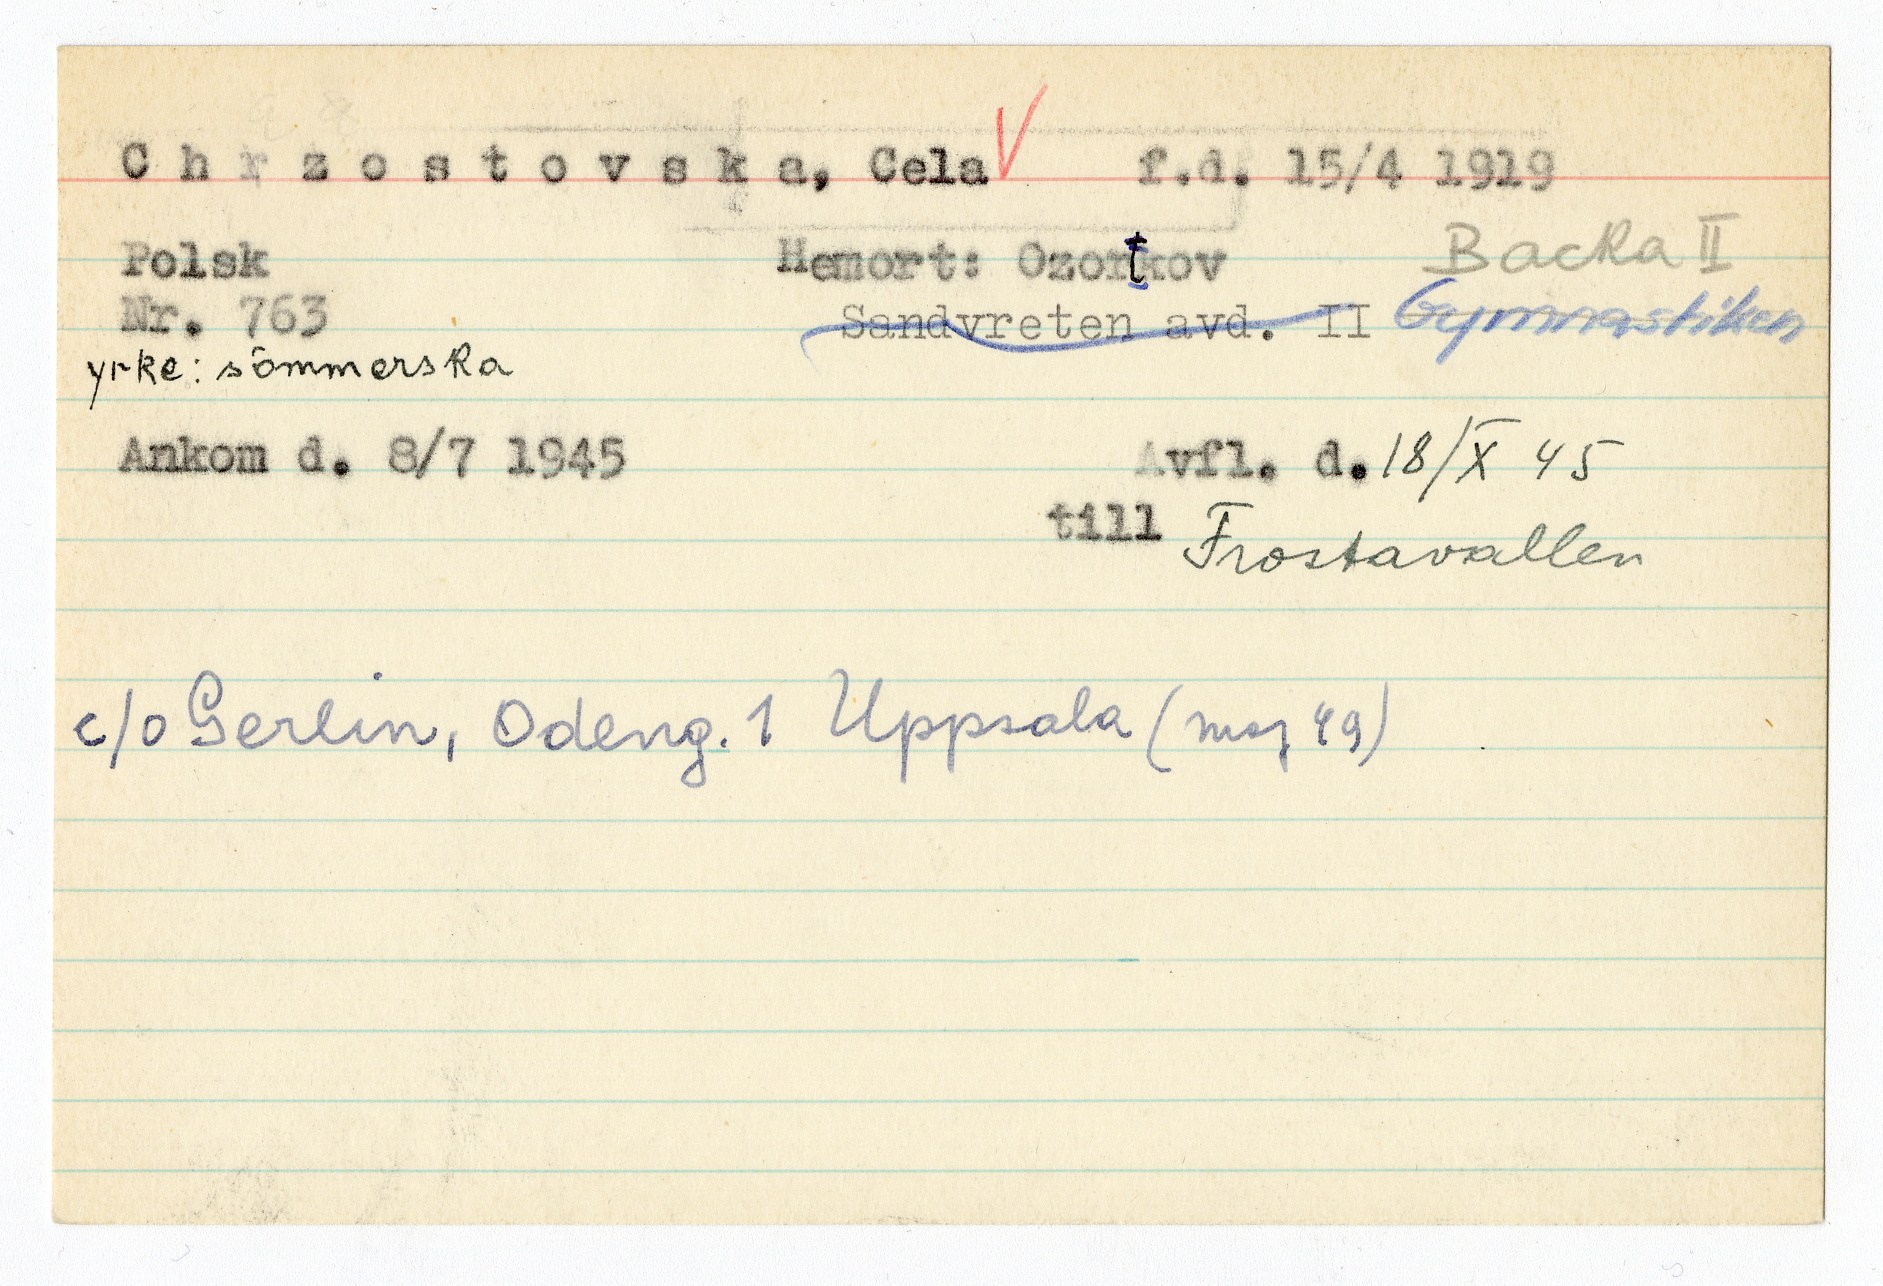 C h r z o s t o v s k a, Cela V f.d. 15/4 1919
Polsk Hemort: Ozortkov Backa II
Nr. 763 Sandvreten avd. II Gymnastiken
yrke: sömmerska
Ankom d. 8/7 1945 Avfl. d. 18/X 45
till Frostavallen
c/o Gerlin, Odeng. 1 Uppsala (maj 49)